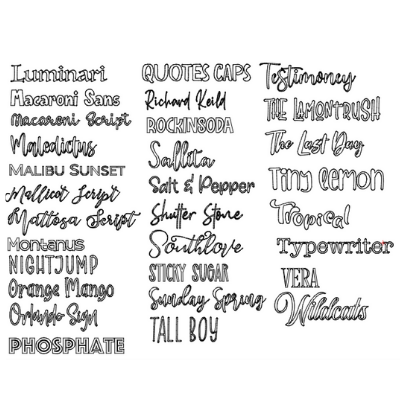 Luminari
Macaroni Sans
Macaroni Script
Maledictus
MALIBU SUNSET
Mellicot Script
Mattosa Script
Montanus
NIGHTJUMP
Orange Mango
Orlando Sign
PHOSPHATE
QUOTES CAPS
Richard Keild
ROCKINSODA
Sallita
Salt & Pepper
Shutter Stone
Southlove
STICKY SUGAR
Sunday Spring
TALL BOY
Testimoney
THE LAMONTRUSH
The Last Day
Tiny Lemon
Tropical
Typewriter
VERA
Wildcats